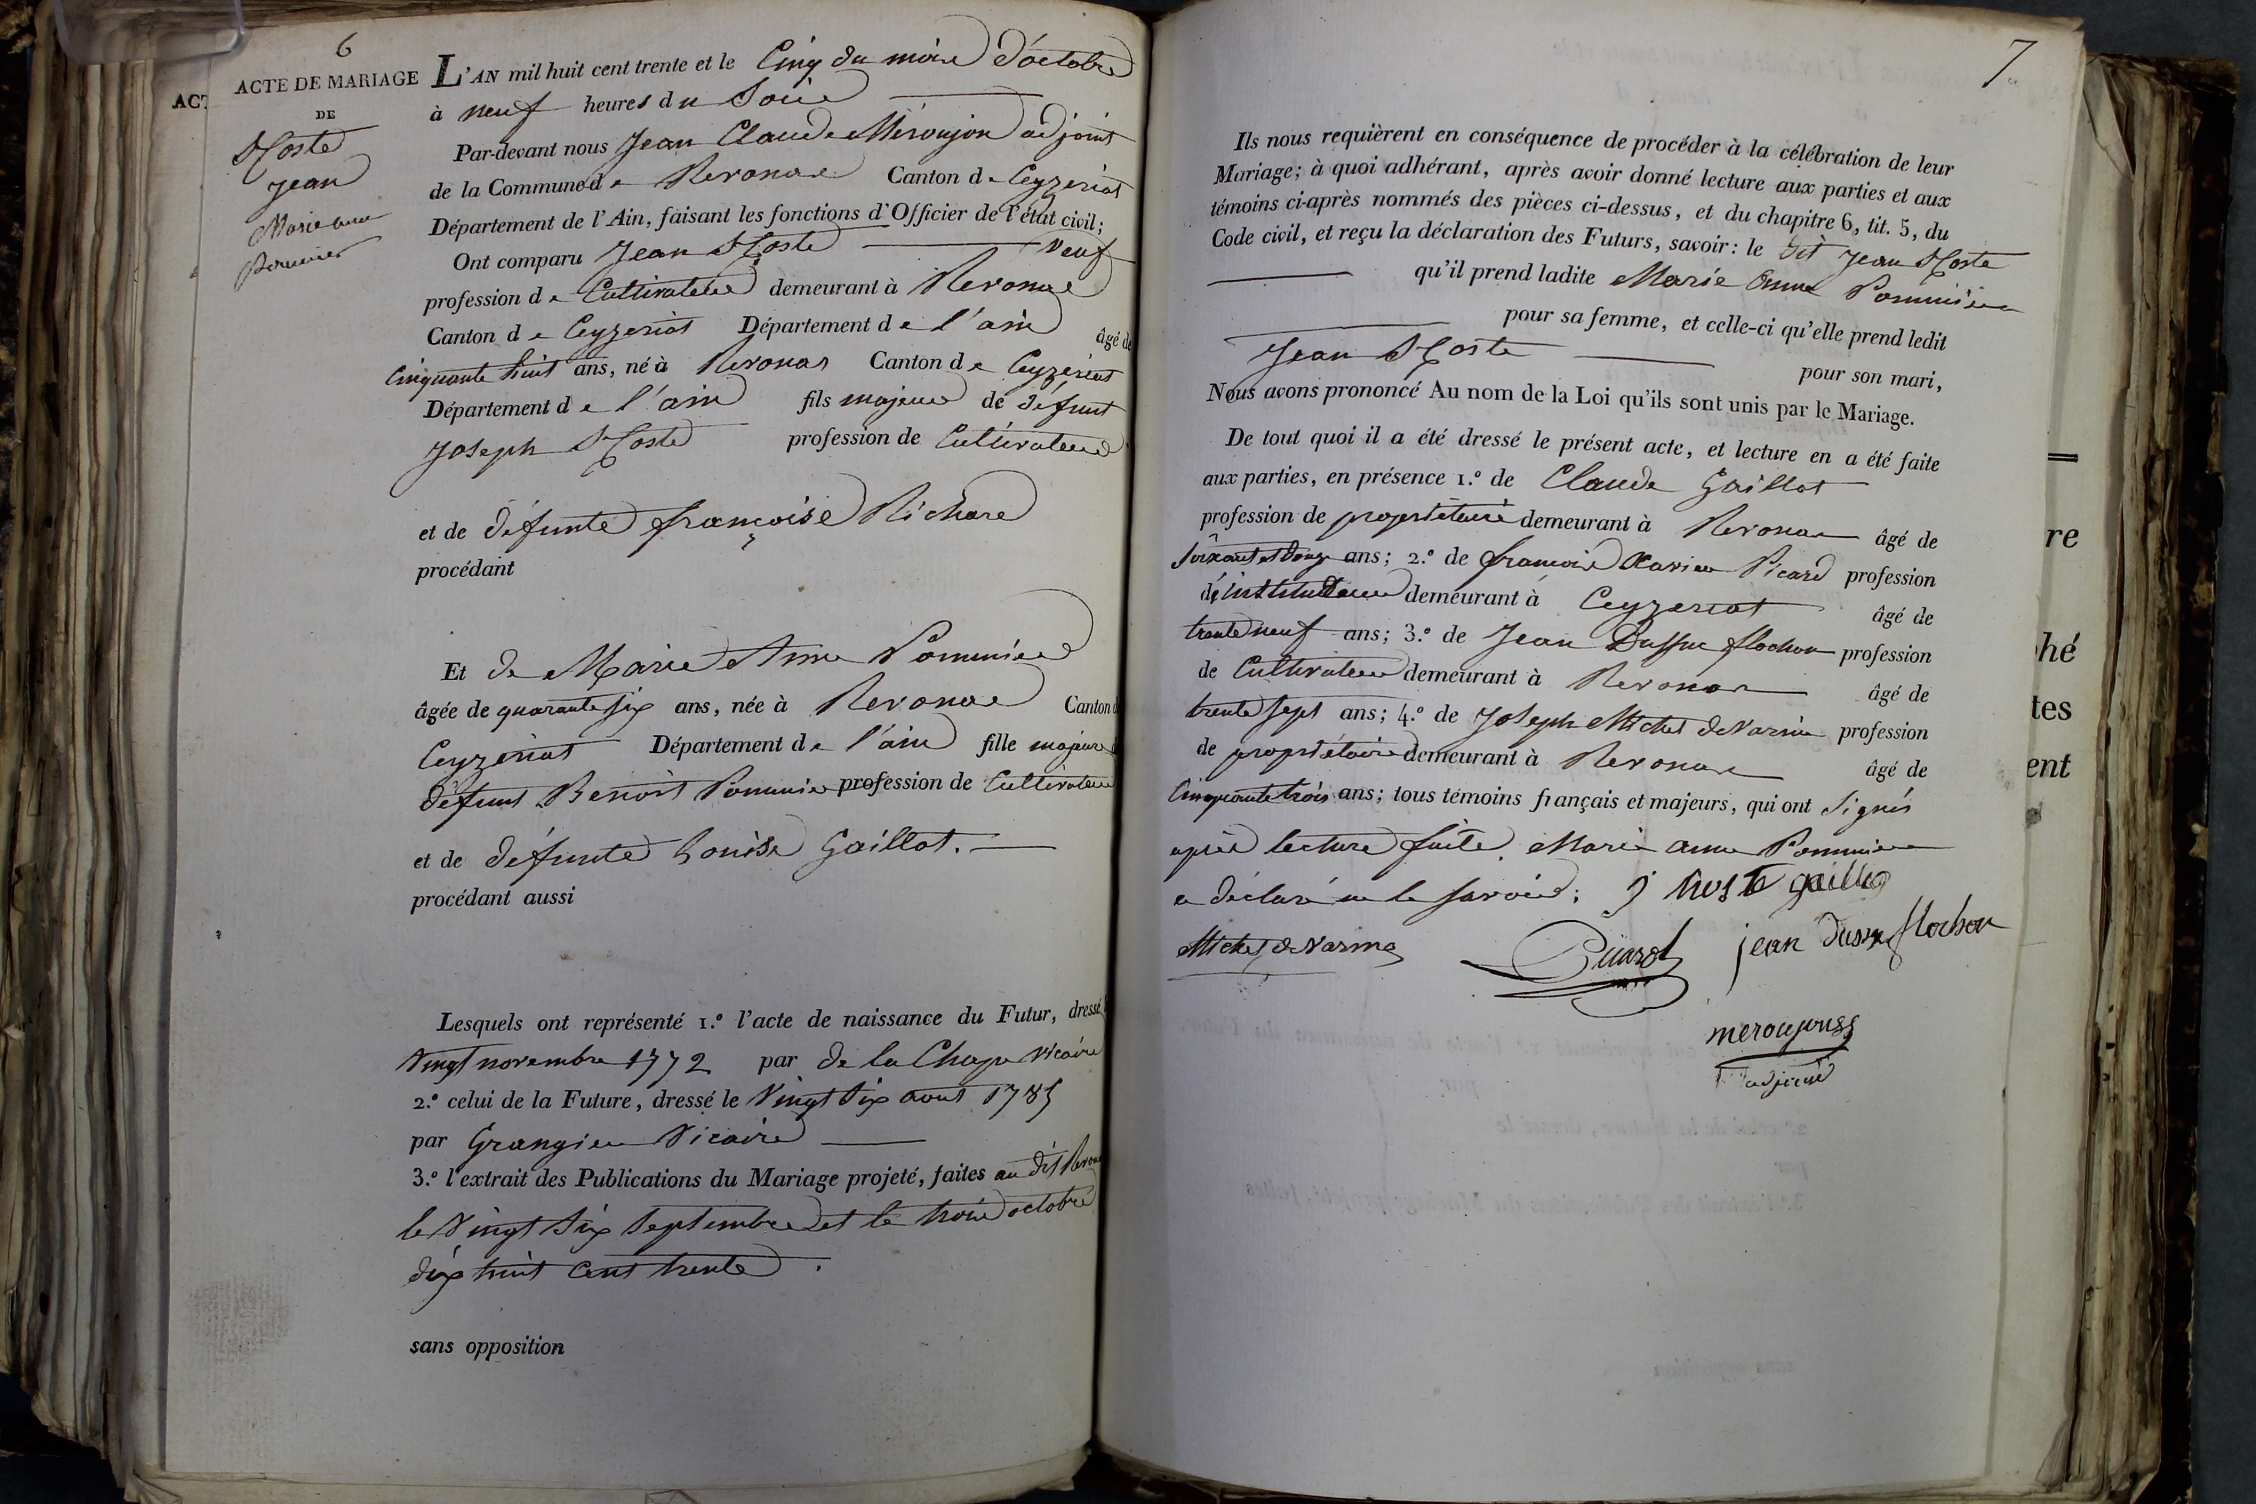 6
ACTE DE MARIAGE
DE
Coste
Jean
Marie anne
ACT
L'AN mil huit cent trente et le Cinq du mois d'octobre
à neuf heures du Soir
Par-devant nous Jean Claude Méroujon adjoint
de la Commune de Revonas Canton de Ceyzeriat
Département de l'Ain, faisant les fonctions d'Officier de l'état civil;
Ont comparu Jean Coste veuf
profession de Cultivateur demeurant à Revonas
Canton de Ceyzeriat Département de l'ain âgé de
Cinquante huit ans, né à Revonas Canton de Ceyzériat
Département de l'ain fils majeur de défunt
Joseph Coste profession de Cultivateur
et de défunte françoise Richard
procédant
Et de Marie Anne Pommier
âgée de quarante six ans, née à Revonas Canton d
Ceyzériat Département de l'ain fille majeure
défunt Benoit Pommier profession de Cultivateur
et de défunte Louise Gaillot.
procédant aussi
Lesquels ont représenté 1.º l'acte de naissance du Futur, dressé
Vingt novembre 1772 par de la Chapa Vicaire
2.º celui de la Future, dressé le Vingt Six aout 1785
par Grangier Vicaire
3.º l'extrait des Publications du Mariage projeté, faites au dit Revonas
le Vingt Six Septembre et le trois octobre
dix huit cent trente.
sans opposition
7
Ils nous requièrent en conséquence de procéder à la célébration de leur
Mariage; à quoi adhérant, après avoir donné lecture aux parties et aux
témoins ci-après nommés des pièces ci-dessus, et du chapitre 6, tit. 5, du
Code civil, et reçu la déclaration des Futurs, savoir: le dit Jean Coste
qu'il prend ladite Marie Anne Pommier
pour sa femme, et celle-ci qu'elle prend ledit
Jean Coste
pour son mari,
Nous avons prononcé Au nom de la Loi qu'ils sont unis par le Mariage.
De tout quoi il a été dressé le présent acte, et lecture en a été faite
aux parties, en présence 1.º de Claude Gaillot
profession de propriétaire demeurant à Revonas âgé de
ans; 2.º de françois Xavier Picard profession
d'instituteur demeurant à Ceyzeriat âgé de
trente neuf ans; 3.º de Jean Dussuc flochon profession
de Cultivateur demeurant à Revonas âgé de
trente sept ans; 4.º de Joseph Michel de Varine profession
de propriétaire demeurant à Revonas âgé de
Cinquante trois ans; tous témoins français et majeurs, qui ont Signés
après lecture faite. Marie anne Pommier
a déclaré ne le savoir; j Coste gaillot
Michel de Varine Picard jean dussuc flochon
meroujon
adjoint
re
phé
tes
ent